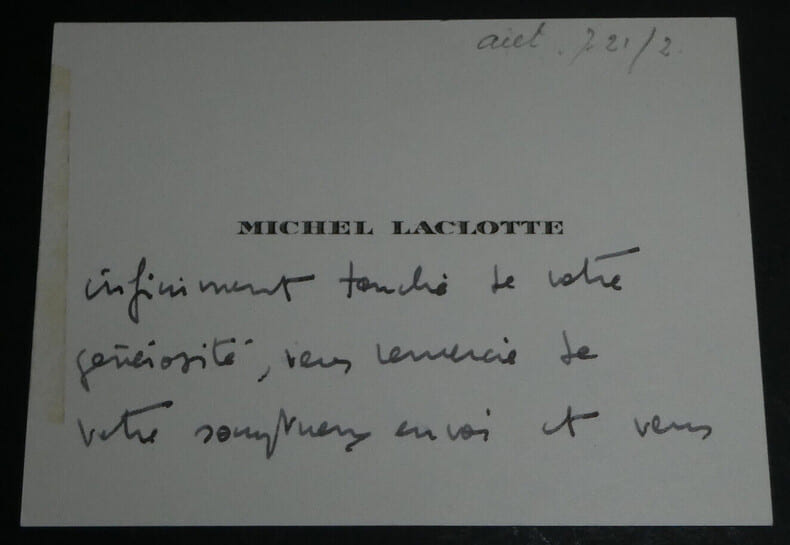 721/2
MICHEL LACLOTTE
infiniment touché de votre
générosité, vous remercie de
votre somptueux envoi et vous